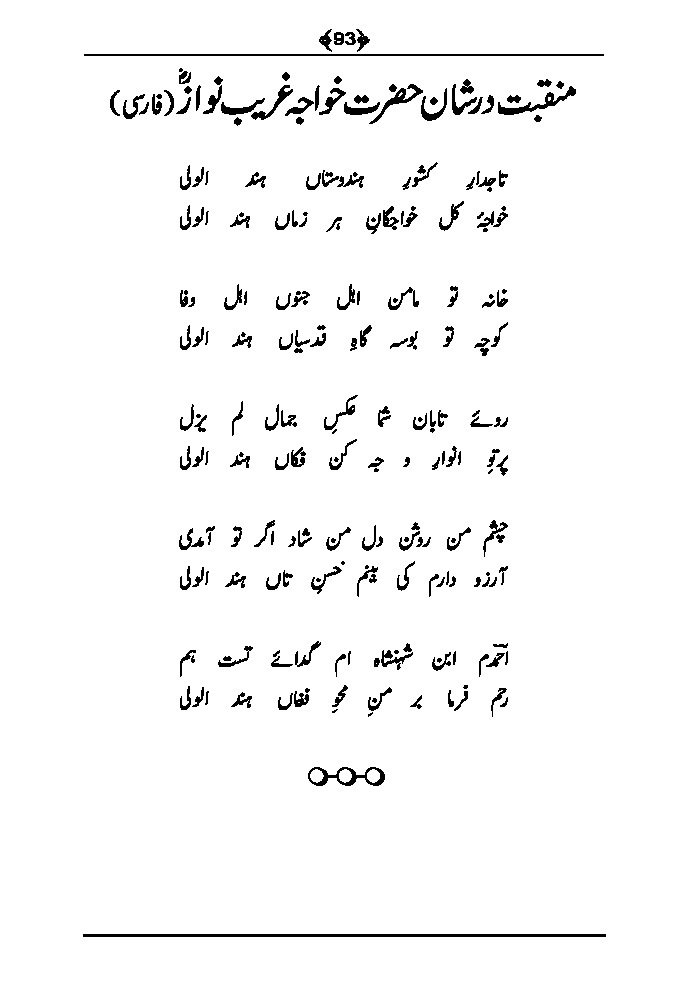 ﴾93﴿
منقبت در شان حضرت خواجہ غریب نوازؒ (فارسی)
تاجدارِ کشورِ ہندوستاں ہند الولی
خواجۂ کل خواجگانِ ہر زماں ہند الولی
خانہ تو مامن اہل جنوں اہل وفا
کوچہ تو بوسہ گاہِ قدسیاں ہند الولی
روئے تابان شما عکسِ جمال لم یزل
پرتوِ انوارِ و جہ کن فکاں ہند الولی
چشم من روشن دل من شاد اگر تو آمدی
آرزو دارم کی بینم حسنِ تاں ہند الولی
احمدؔم ابن شہنشاہ ام گدائے تست ہم
رحم فرما بر منِ محوِ فغاں ہند الولی